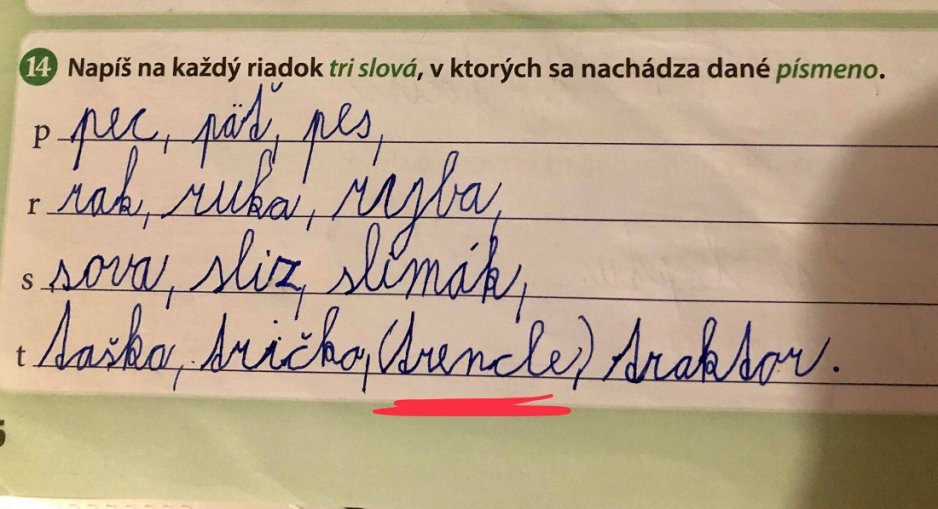 14 Napíš na každý riadok tri slová, v ktorých sa nachádza dané písmeno.
p pec, päť, pes,
r rak, ruka, ryba,
s sova, sliz, slimák,
t taška, tričko, (trencle) traktor.